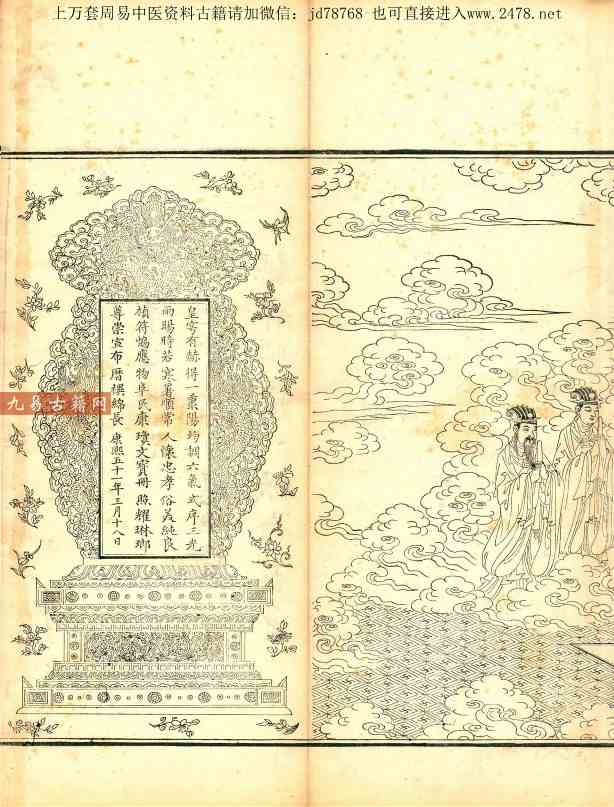 上万套周易中医资料古籍请加微信：jd78768 也可直接进入www.2478.net
皇穹有赫得一秉陽均調六氣式序三光
雨暘時若寒暑順常人懷忠孝俗美純良
禎符炳應物阜民康瓊文寶冊照耀琳瑯
尊崇宣布曆禩綿長 康熙五十一年三月十八日
九易古籍网